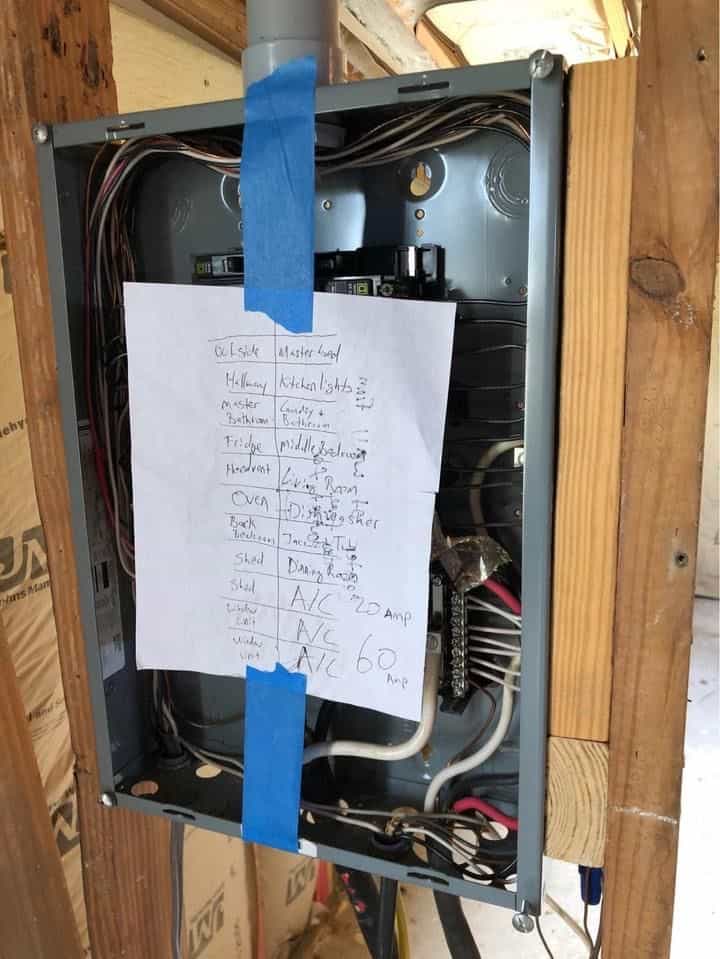 Outside Master bed
Hallway Kitchen lights
Master Bathroom
Laundry + Bathroom
Fridge Middle Bedroom
Living Room
Oven Dishwasher
Back Bedroom
Shed Dining Room
Shed A/C 20 Amp
Window Unit A/C
Window Unit A/C 60 Amp
JM
JM